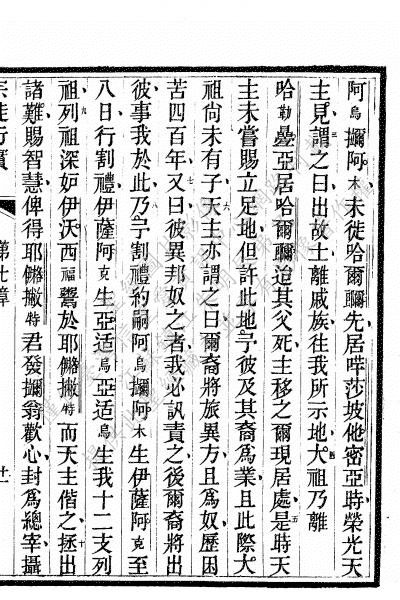 阿烏擱阿木未徙哈爾𡭗先居咩莎坡他密亞時榮光天
主見謂之曰出故土離戚族往我所示地大祖乃離
哈勒疉亞居哈爾𡭗迨其父死主移之爾現居處是時天
主未嘗賜立足地但許此地予彼及其裔為業且此際大
祖尙未有子天主亦謂之曰爾裔將旅異方且為奴歷困
苦四百年又曰彼異邦奴之者我必訊責之後爾裔將出
彼事我於此乃予割禮約嗣阿烏擱阿木生伊薩阿克至
八日行割禮伊薩阿克生亞适烏亞适烏生我十二支列
祖列祖深妒伊沃西福鬻於耶撇特而天主偕之拯出
諸難賜智慧俾得耶撇特君發擱翁歡心封為總宰攝
宗徒行實
第七章